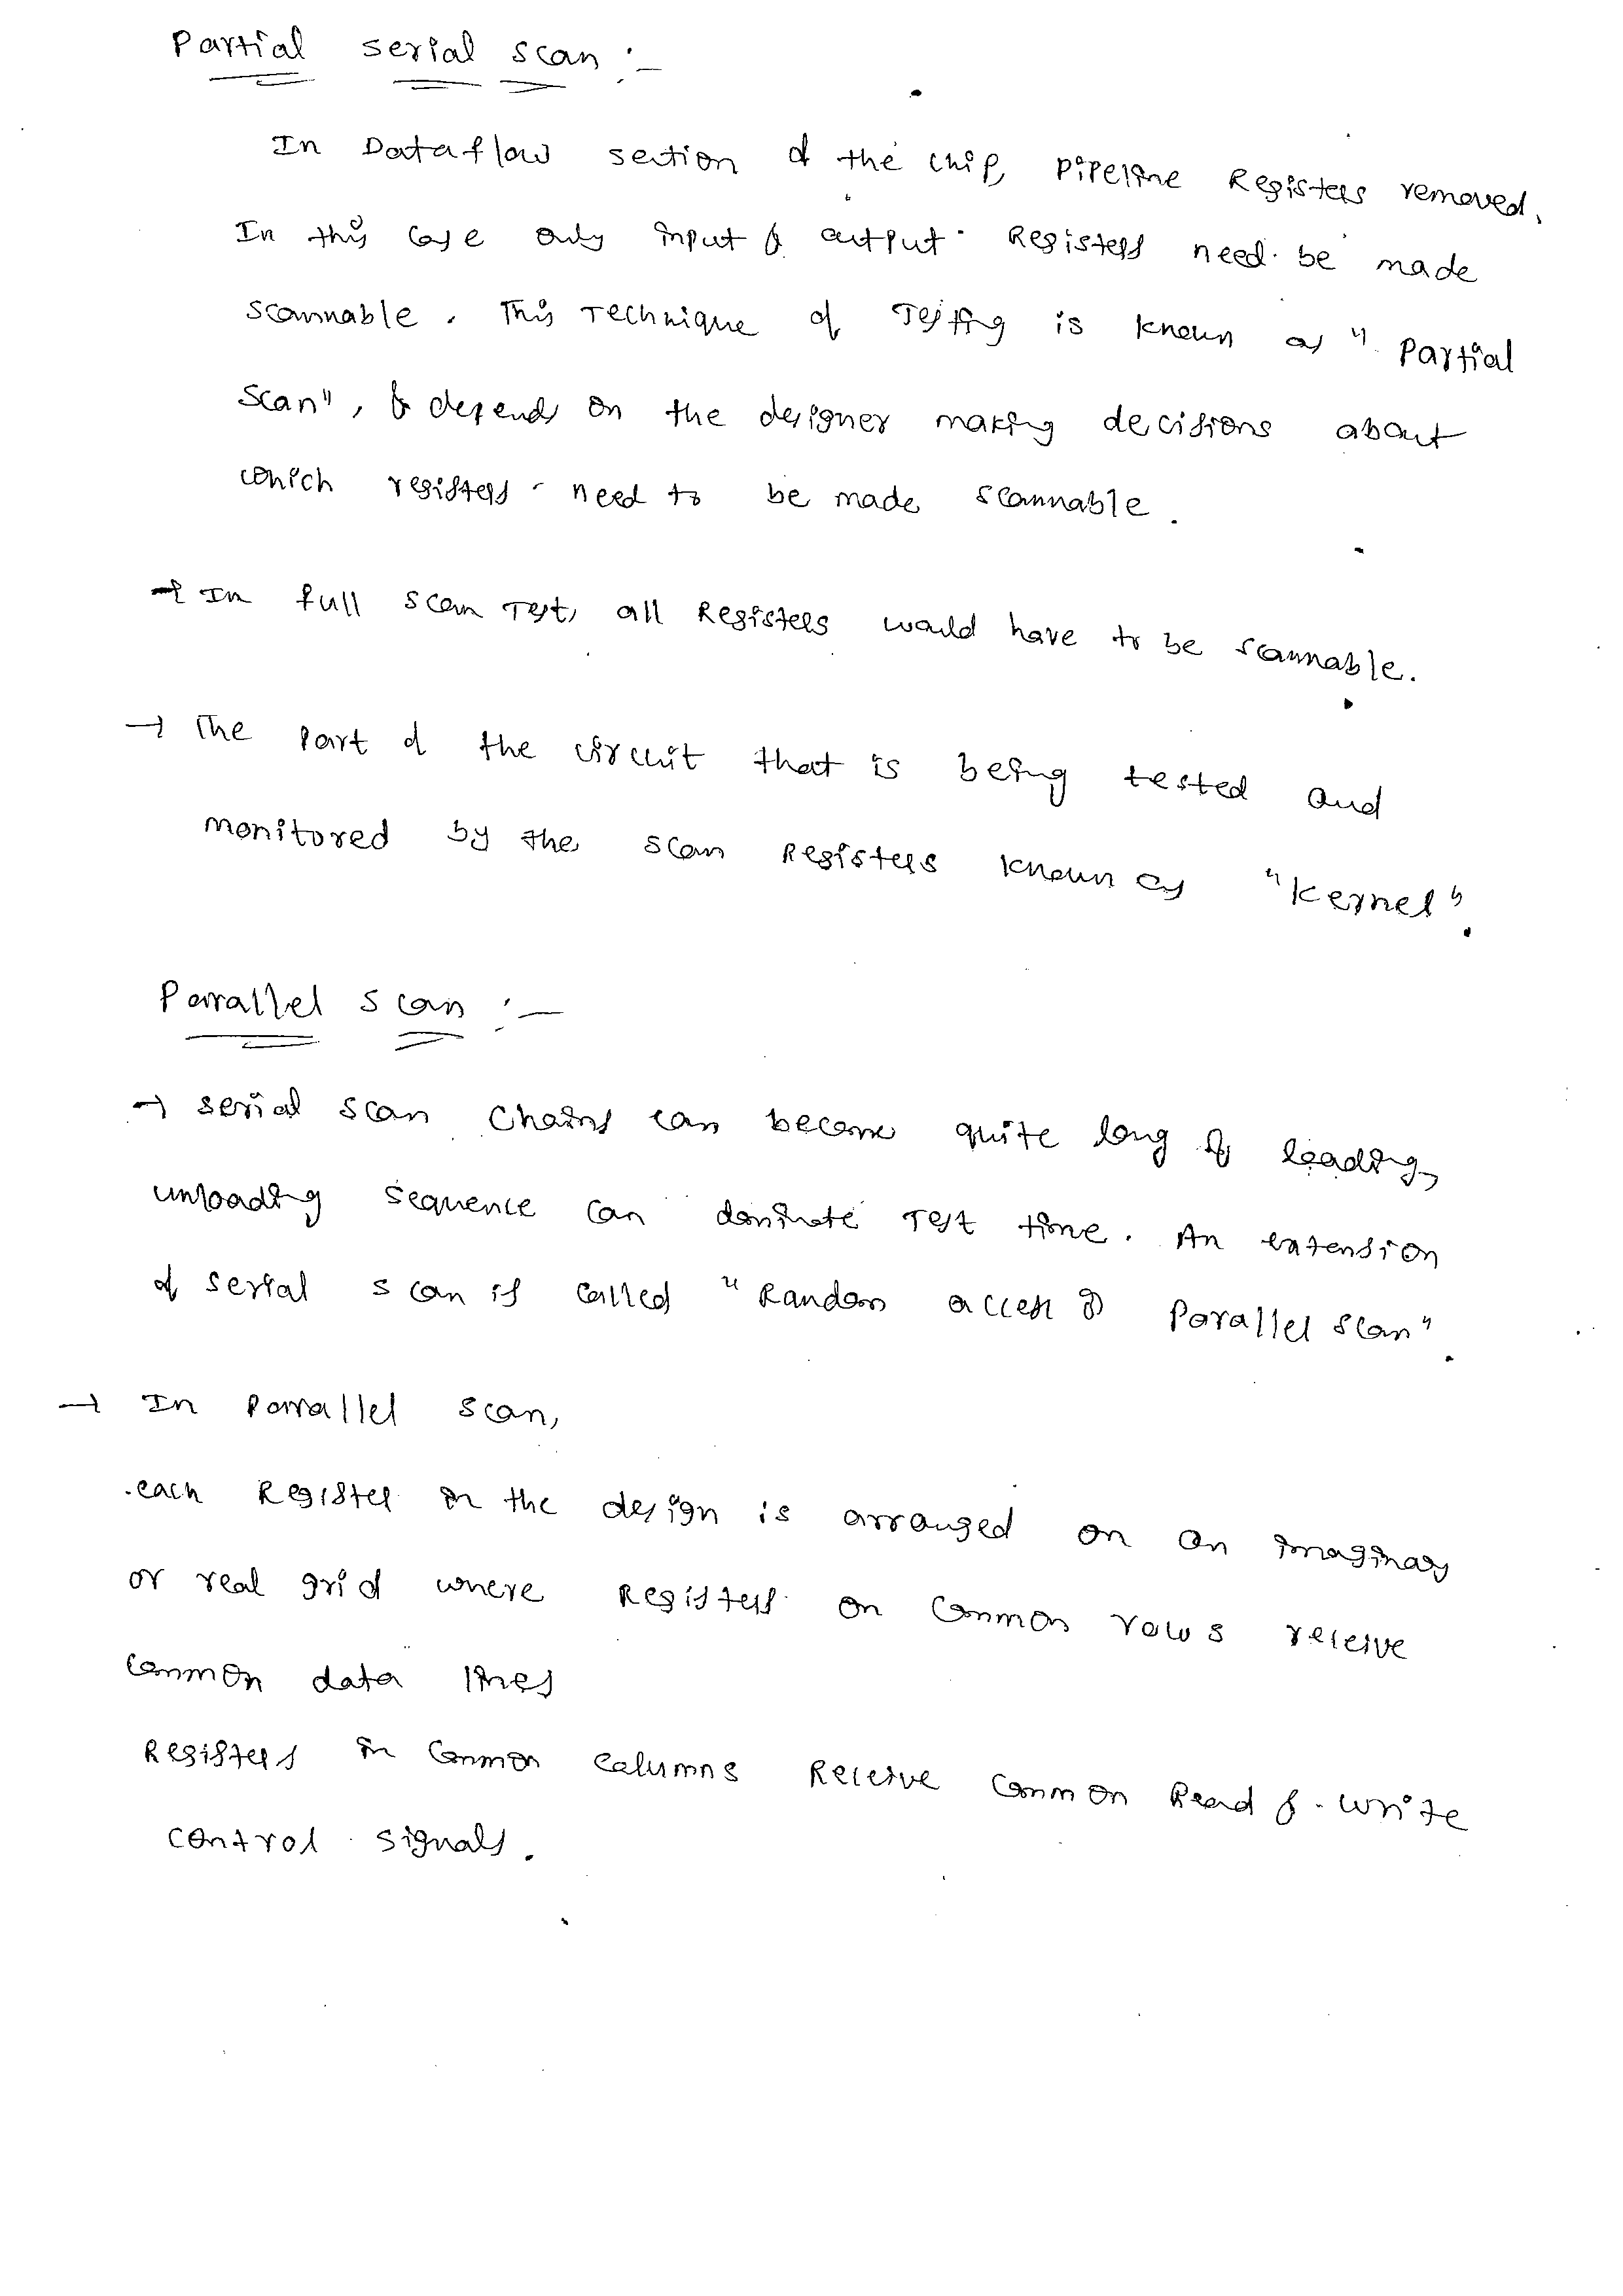 Partial serial scan :-
In Dataflow section of the chip, Pipeline Registers removed.
In this case only input & output Registers need be made
scannable. This Technique of Testing is known as "Partial
Scan", & depends on the designer making decisions about
which registers need to be made scannable.
→ In full scan Test, all Registers would have to be scannable.
→ The part of the circuit that is being tested and
monitored by the scan Registers known as "kernel".
Parallel scan :-
→ serial scan chains can become quite long & loading,
unloading sequence can dominate Test time. An extension
of serial scan is called "Random access or Parallel scan".
→ In Parallel scan,
each Register in the design is arranged on an imaginary
or real grid where Registers on common rows receive
common data lines
Registers in common columns Receive common Read & write
control signals.